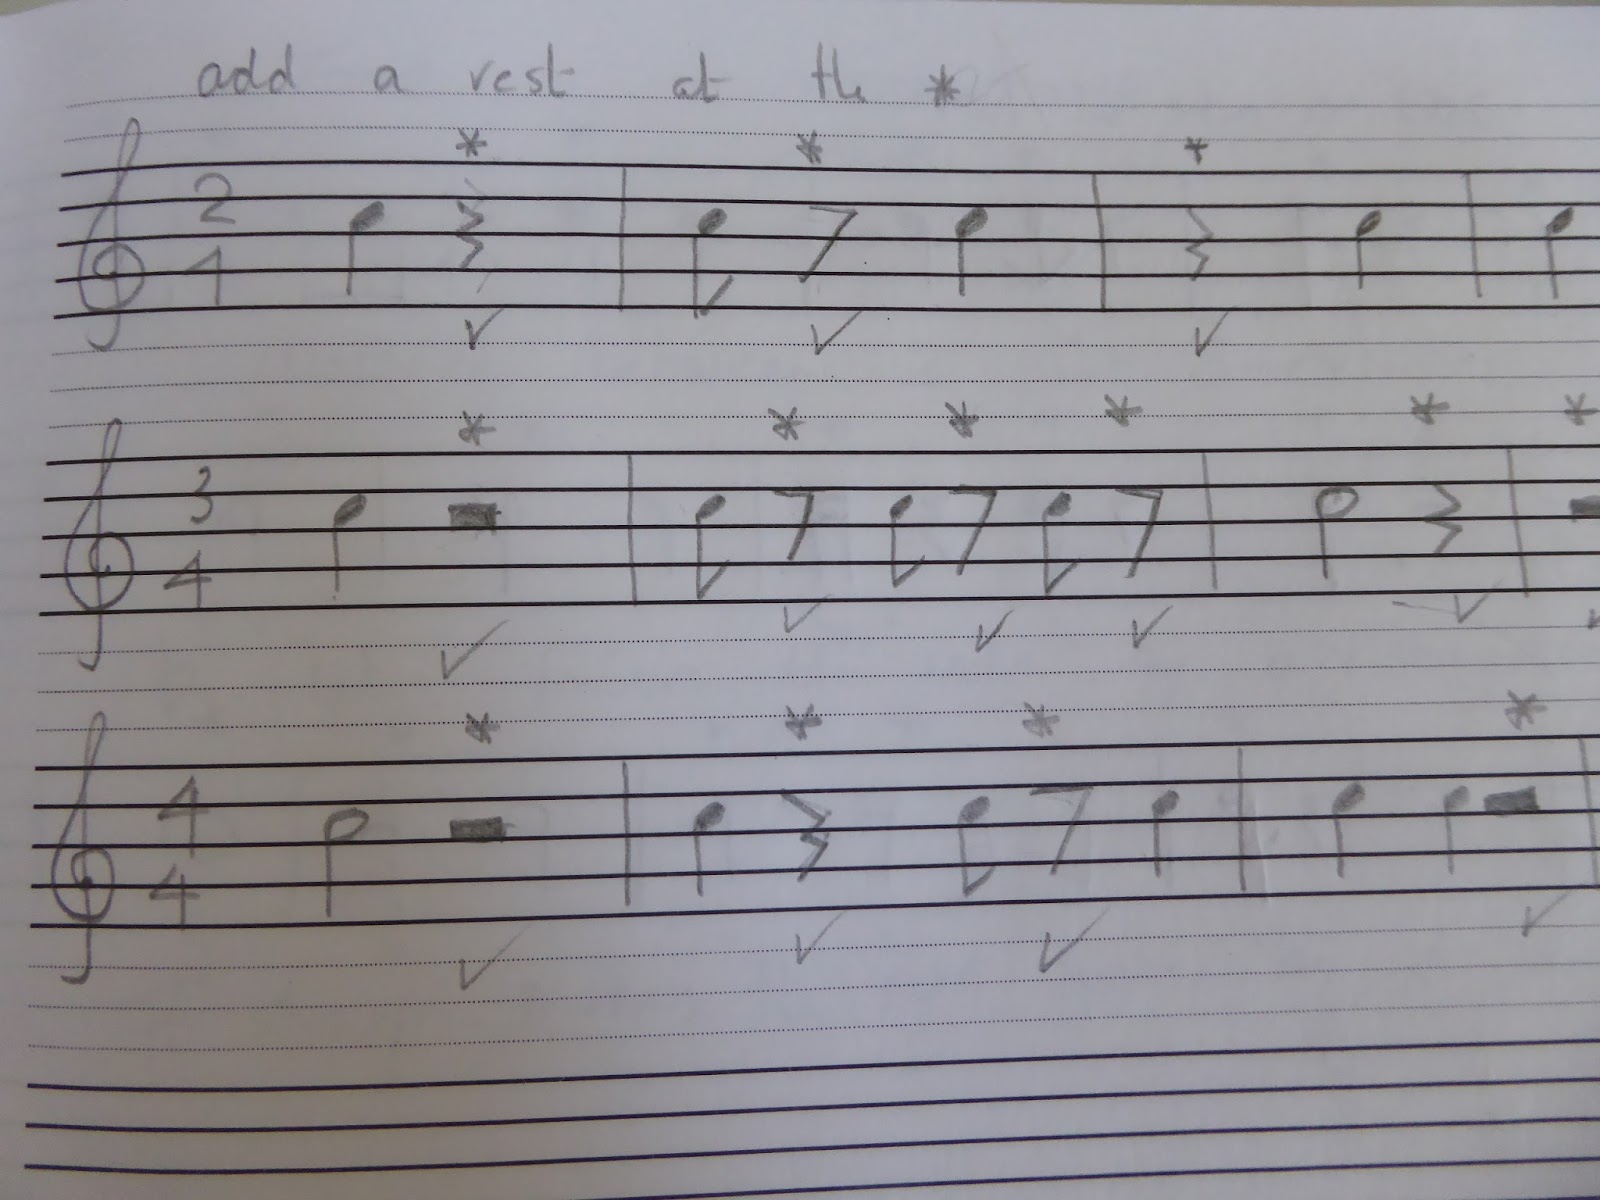 add a rest at the *
* * *
2
4
* * * * * *
3
4
* * * *
4
4